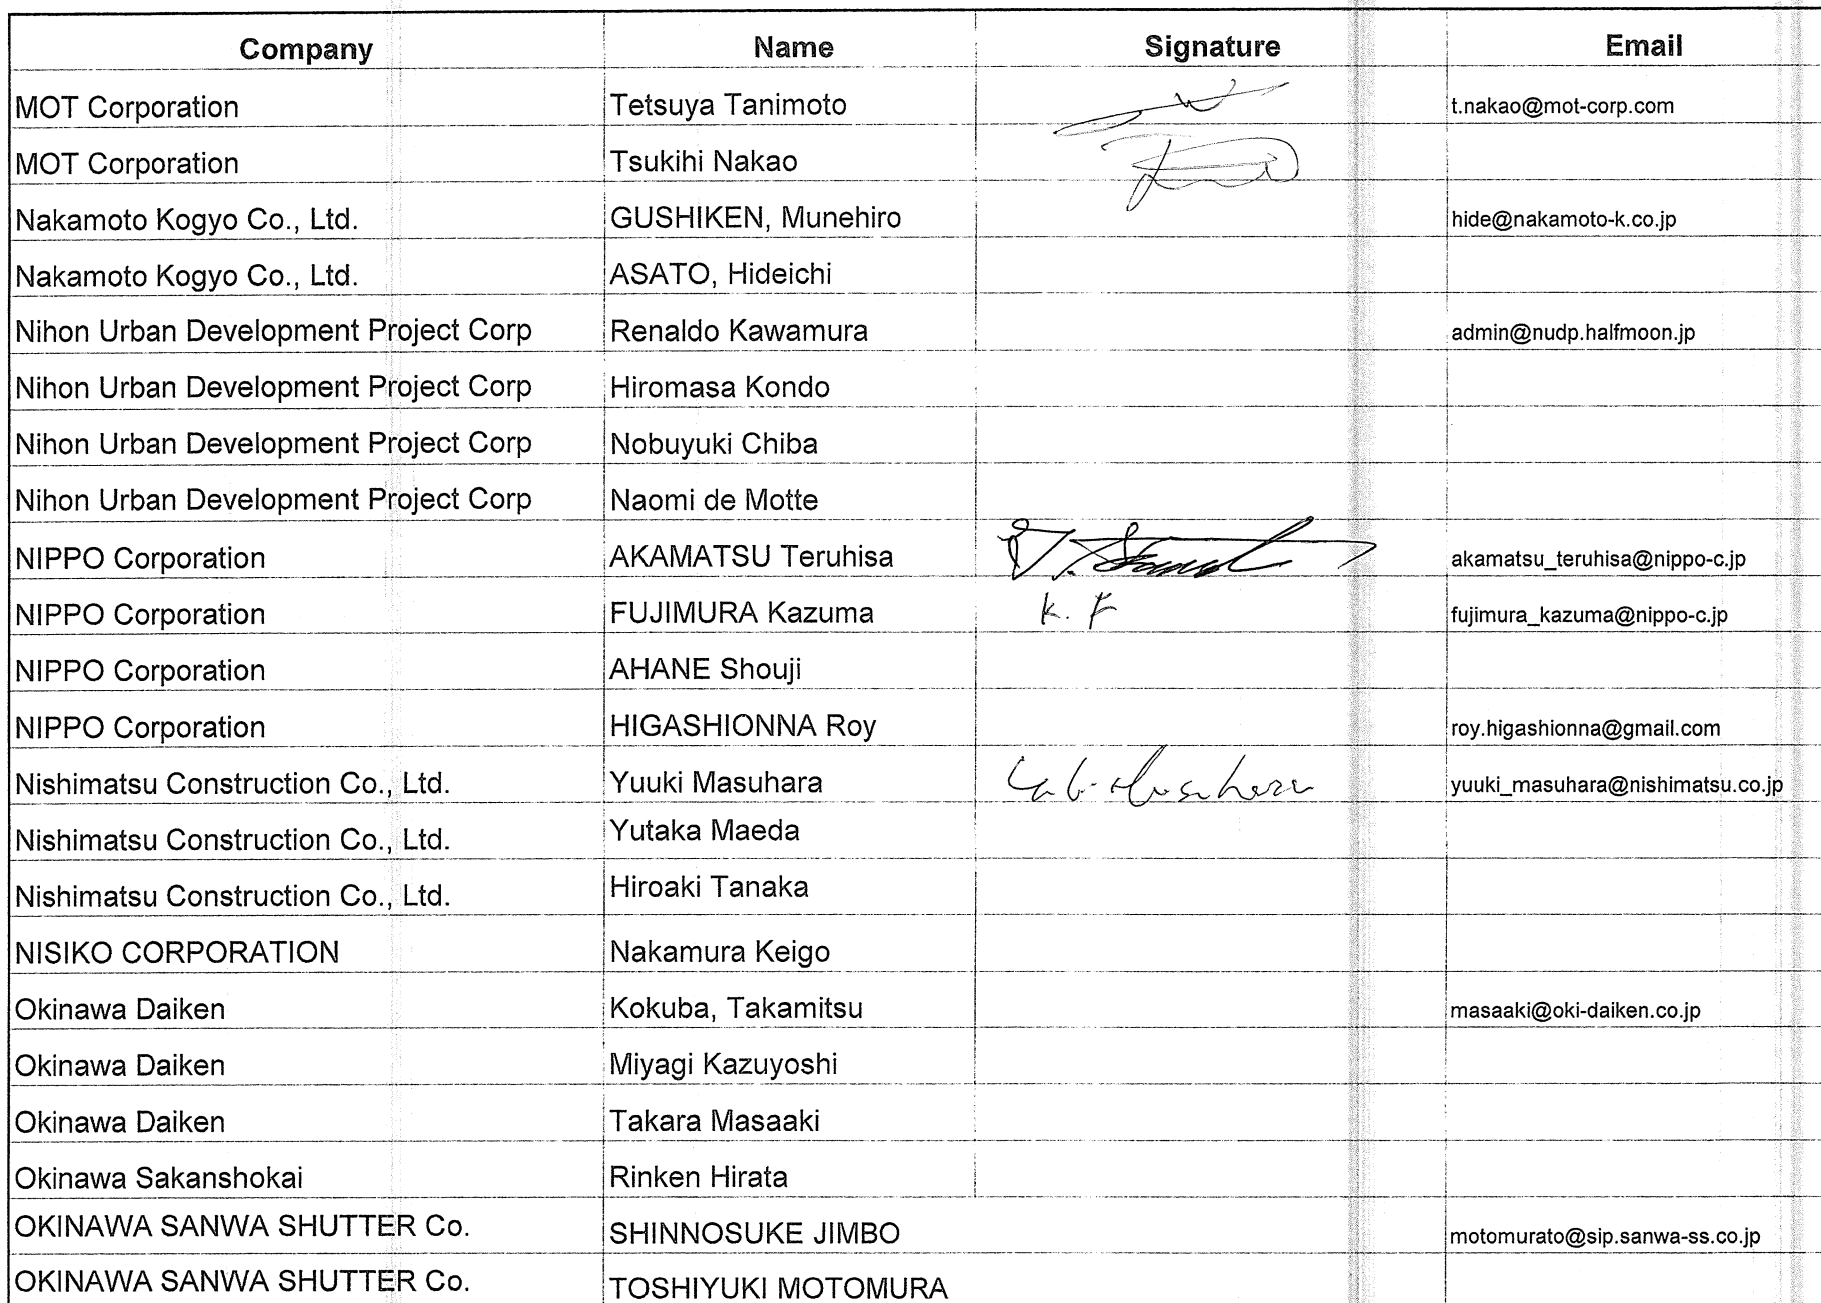 Company Name Signature Email
MOT Corporation Tetsuya Tanimoto t.nakao@mot-corp.com
MOT Corporation Tsukihi Nakao
Nakamoto Kogyo Co., Ltd. GUSHIKEN, Munehiro hide@nakamoto-k.co.jp
Nakamoto Kogyo Co., Ltd. ASATO, Hideichi
Nihon Urban Development Project Corp Renaldo Kawamura admin@nudp.halfmoon.jp
Nihon Urban Development Project Corp Hiromasa Kondo
Nihon Urban Development Project Corp Nobuyuki Chiba
Nihon Urban Development Project Corp Naomi de Motte
NIPPO Corporation AKAMATSU Teruhisa akamatsu_teruhisa@nippo-c.jp
NIPPO Corporation FUJIMURA Kazuma K. F fujimura_kazuma@nippo-c.jp
NIPPO Corporation AHANE Shouji
NIPPO Corporation HIGASHIONNA Roy roy.higashionna@gmail.com
Nishimatsu Construction Co., Ltd. Yuuki Masuhara yuuki_masuhara@nishimatsu.co.jp
Nishimatsu Construction Co., Ltd. Yutaka Maeda
Nishimatsu Construction Co., Ltd. Hiroaki Tanaka
NISIKO CORPORATION Nakamura Keigo
Okinawa Daiken Kokuba, Takamitsu masaaki@oki-daiken.co.jp
Okinawa Daiken Miyagi Kazuyoshi
Okinawa Daiken Takara Masaaki
Okinawa Sakanshokai Rinken Hirata
OKINAWA SANWA SHUTTER Co. SHINNOSUKE JIMBO motomurato@sip.sanwa-ss.co.jp
OKINAWA SANWA SHUTTER Co. TOSHIYUKI MOTOMURA